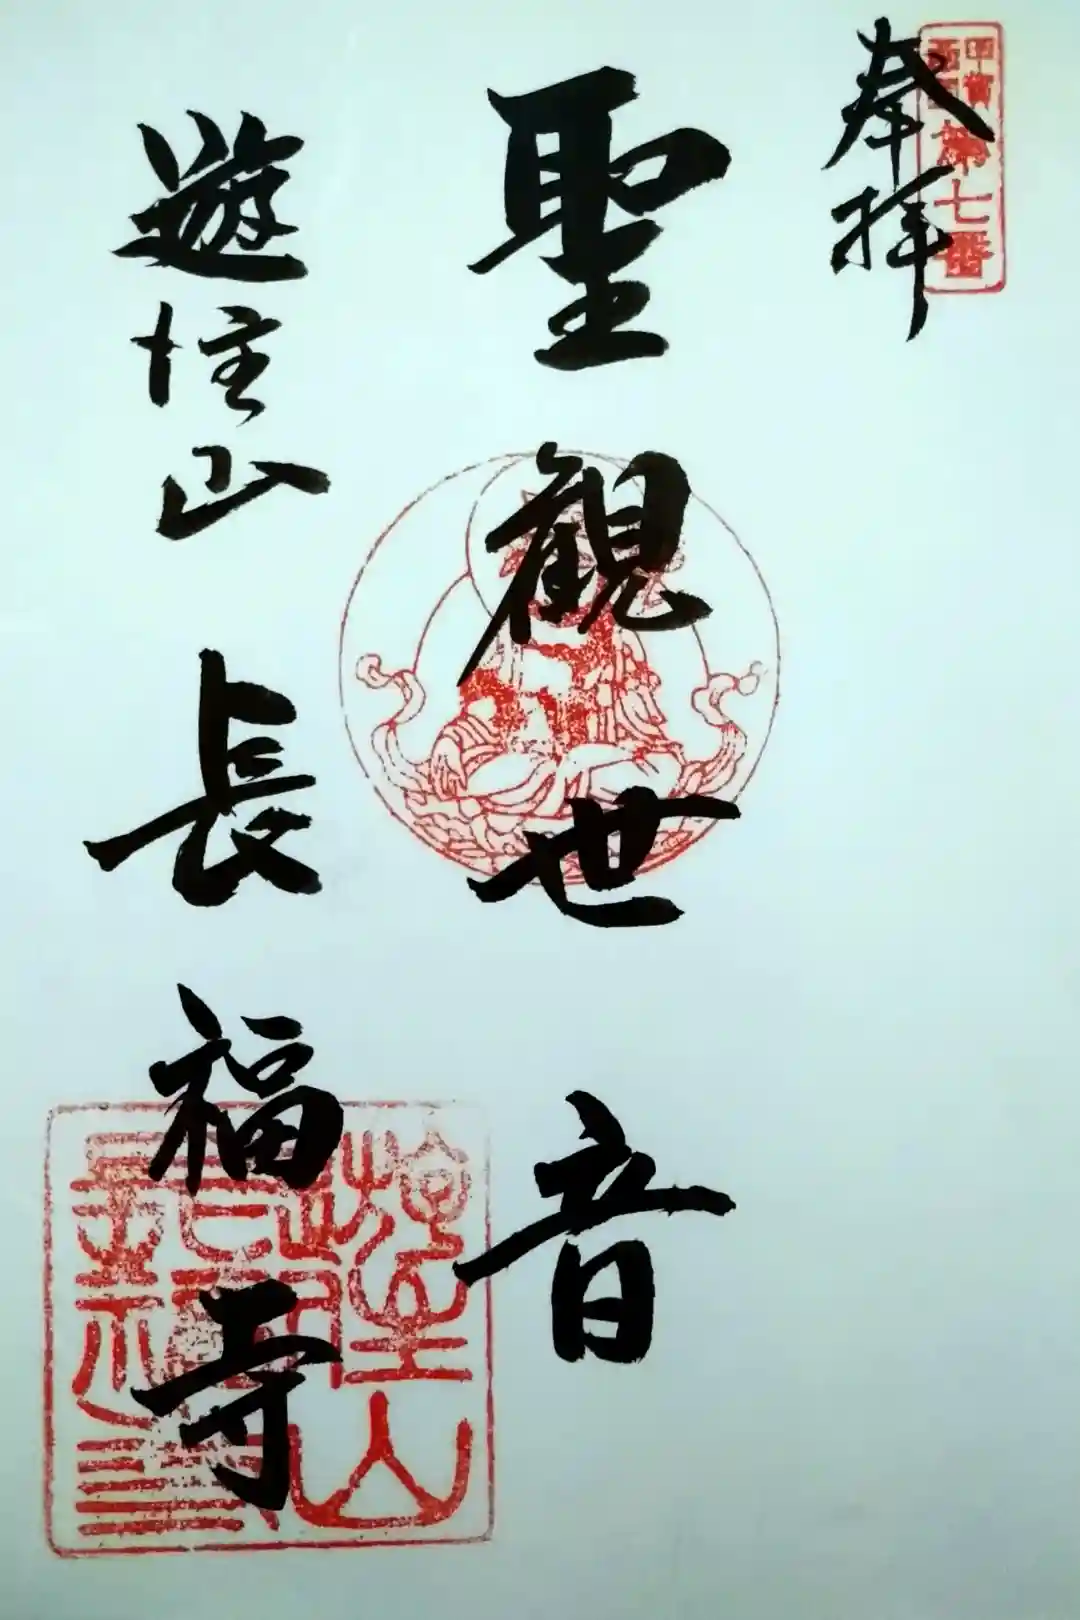 甲賀
西国
第七番
奉拝
聖観世音
遊性山
長福寺